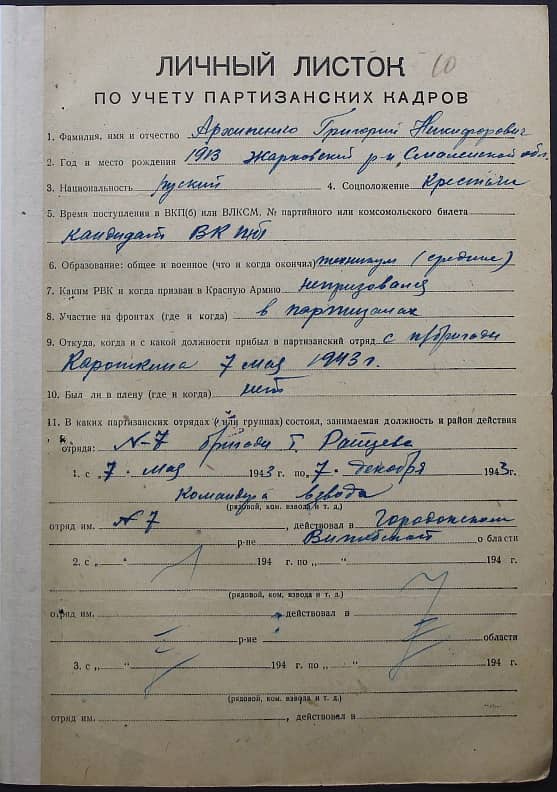 ЛИЧНЫЙ ЛИСТОК 10
ПО УЧЕТУ ПАРТИЗАНСКИХ КАДРОВ
1. Фамилия, имя и отчество Архипенко Григорий Никифорович
2. Год и место рождения 1913 Жарковский р-н, Смоленской обл.
3. Национальность руский 4. Соцположение Крестьян
5. Время поступления в ВКП(б) или ВЛКСМ, № партийного или комсомольского билета
Кандидат ВКП(б)
6. Образование: общее и военное (что и когда окончил) техникум (среднее)
7. Каким РВК и когда призван в Красную Армию непризовался
8. Участие на фронтах (где и когда) в партизанах
9. Откуда, когда и с какой должности прибыл в партизанский отряд с п/бригади
Кароткина 7 мая 1943 г.
10. Был ли в плену (где и когда) нет
11. В каких партизанских отрядах (или группах) состоял, занимаемая должность и район действия
отряда: N-7 бригади Т. Райцева
1. с „7“ мая 1943 г. по „7“ декабря 1943 г.
Командира взвода
(рядовой, ком. взвода и т. д.)
отряд им. N 7, действовал в Городокском
р-не Витебской области
2. с „ “ 194 г. по „ “ 194 г.
(рядовой, ком. взвода и т. д.)
отряд им. действовал в
р-не области
3. с „ “ 194 г. по „ “ 194 г.
(рядовой, ком. взвода и т. д.)
отряд им. , действовал в